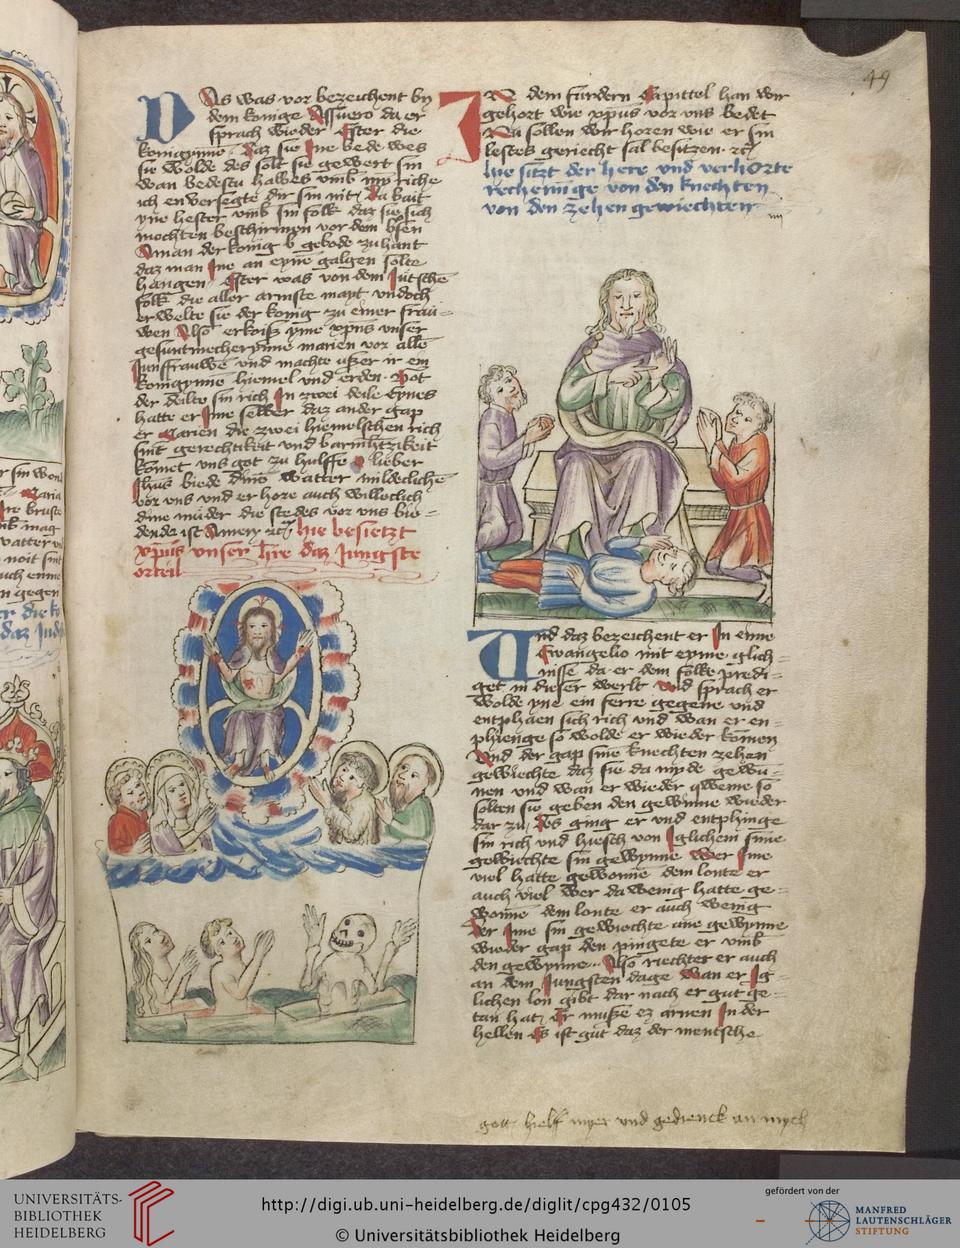 49
DAs was vor bezeichent by
dem konige Assuero da er
sprach wieder Ester die
konigynne daz sie Ine bede wes
sie wolde des solt sie gewert sin
wan bedestu halbes vmb myn riche
ich en versegte dir sin nit Da bait
yne hester vmb sin folk daz sie sich
mochten beschirmen vor dem bosen
Aman der konig gebode zuhant
daz man Ine an eyne galgen solte
hangen Ester was von dem Jutsche
folk die aller armste mayt vndoch
erwelte sie der konig zu einer frau=
wen Also erkoiß yme xpus vnser
gesuntmecherynne marien vor alle
Junffrauwe vnd machte ußer ir ein
konigynne hiemel vnd erden Got
der deilte sin rich In zwei deile Eynes
hatte er Ime selber daz ander gap
er Marien die zwei hiemelschen rich
sint gerechtikeit vnd barmhertzikeit
komet vns got zu hulffe O lieber
Jhus biede dinen vatter mildecliche
vor vns vnd er hore auch willeclich
dine muder die stedes vor vns bie=
dende ist Amen hie besietzt
xpus vnser hre daz Jungste
orteil
IN dem furdern Capittel han wir
gehort wie xpus vor vns bedet
Nu sollen wir horen wie er sin
lestes geriecht sal besitzen
hie sitzt der here vnd verhorte
rechennige von den knechten
von den zehen gewiechten
Vnd daz bezeichent er In eime
Ewangelio mit eyme glich=
nisse da er dem folke predi=
get in dieser werlt vnd sprach er
wolde yne ein ferre gegene vnd
entphaen sich rich vnd wan er en=
phienge so wolde er wieder komen
Vnd der gap sine knechten zehen
gewiechte daz sie da myde gewu=
nen vnd wan er wieder qweme so
solten sie geben den gewinne wieder
dar zu Des ging er vnd entphinge
sin rich vnd hiesch von Iglichem sine
gewiechte sin gewynne Wer Ime
viel hatte gewonne dem lonte er
auch viel wer da wenig hatte ge=
wonne dem lonte er auch wenig
Der Ime sin gewiechte ane gewynne
wieder gap den pingete er vmb
den gewynne Also riechter er auch
an dem Jungsten dage wan er Ig=
lichen lon gibt dar nach er gut ge=
tan hat Er muße ez arnen In der
hellen Es ist gut daz der mentsche
gott hielff myer vnd gedienck an mych
UNIVERSITÄTS-
BIBLIOTHEK
HEIDELBERG
http://digi.ub.uni-heidelberg.de/diglit/cpg432/0105
© Universitätsbibliothek Heidelberg
gefördert von der
MANFRED
LAUTENSCHLÄGER
STIFTUNG